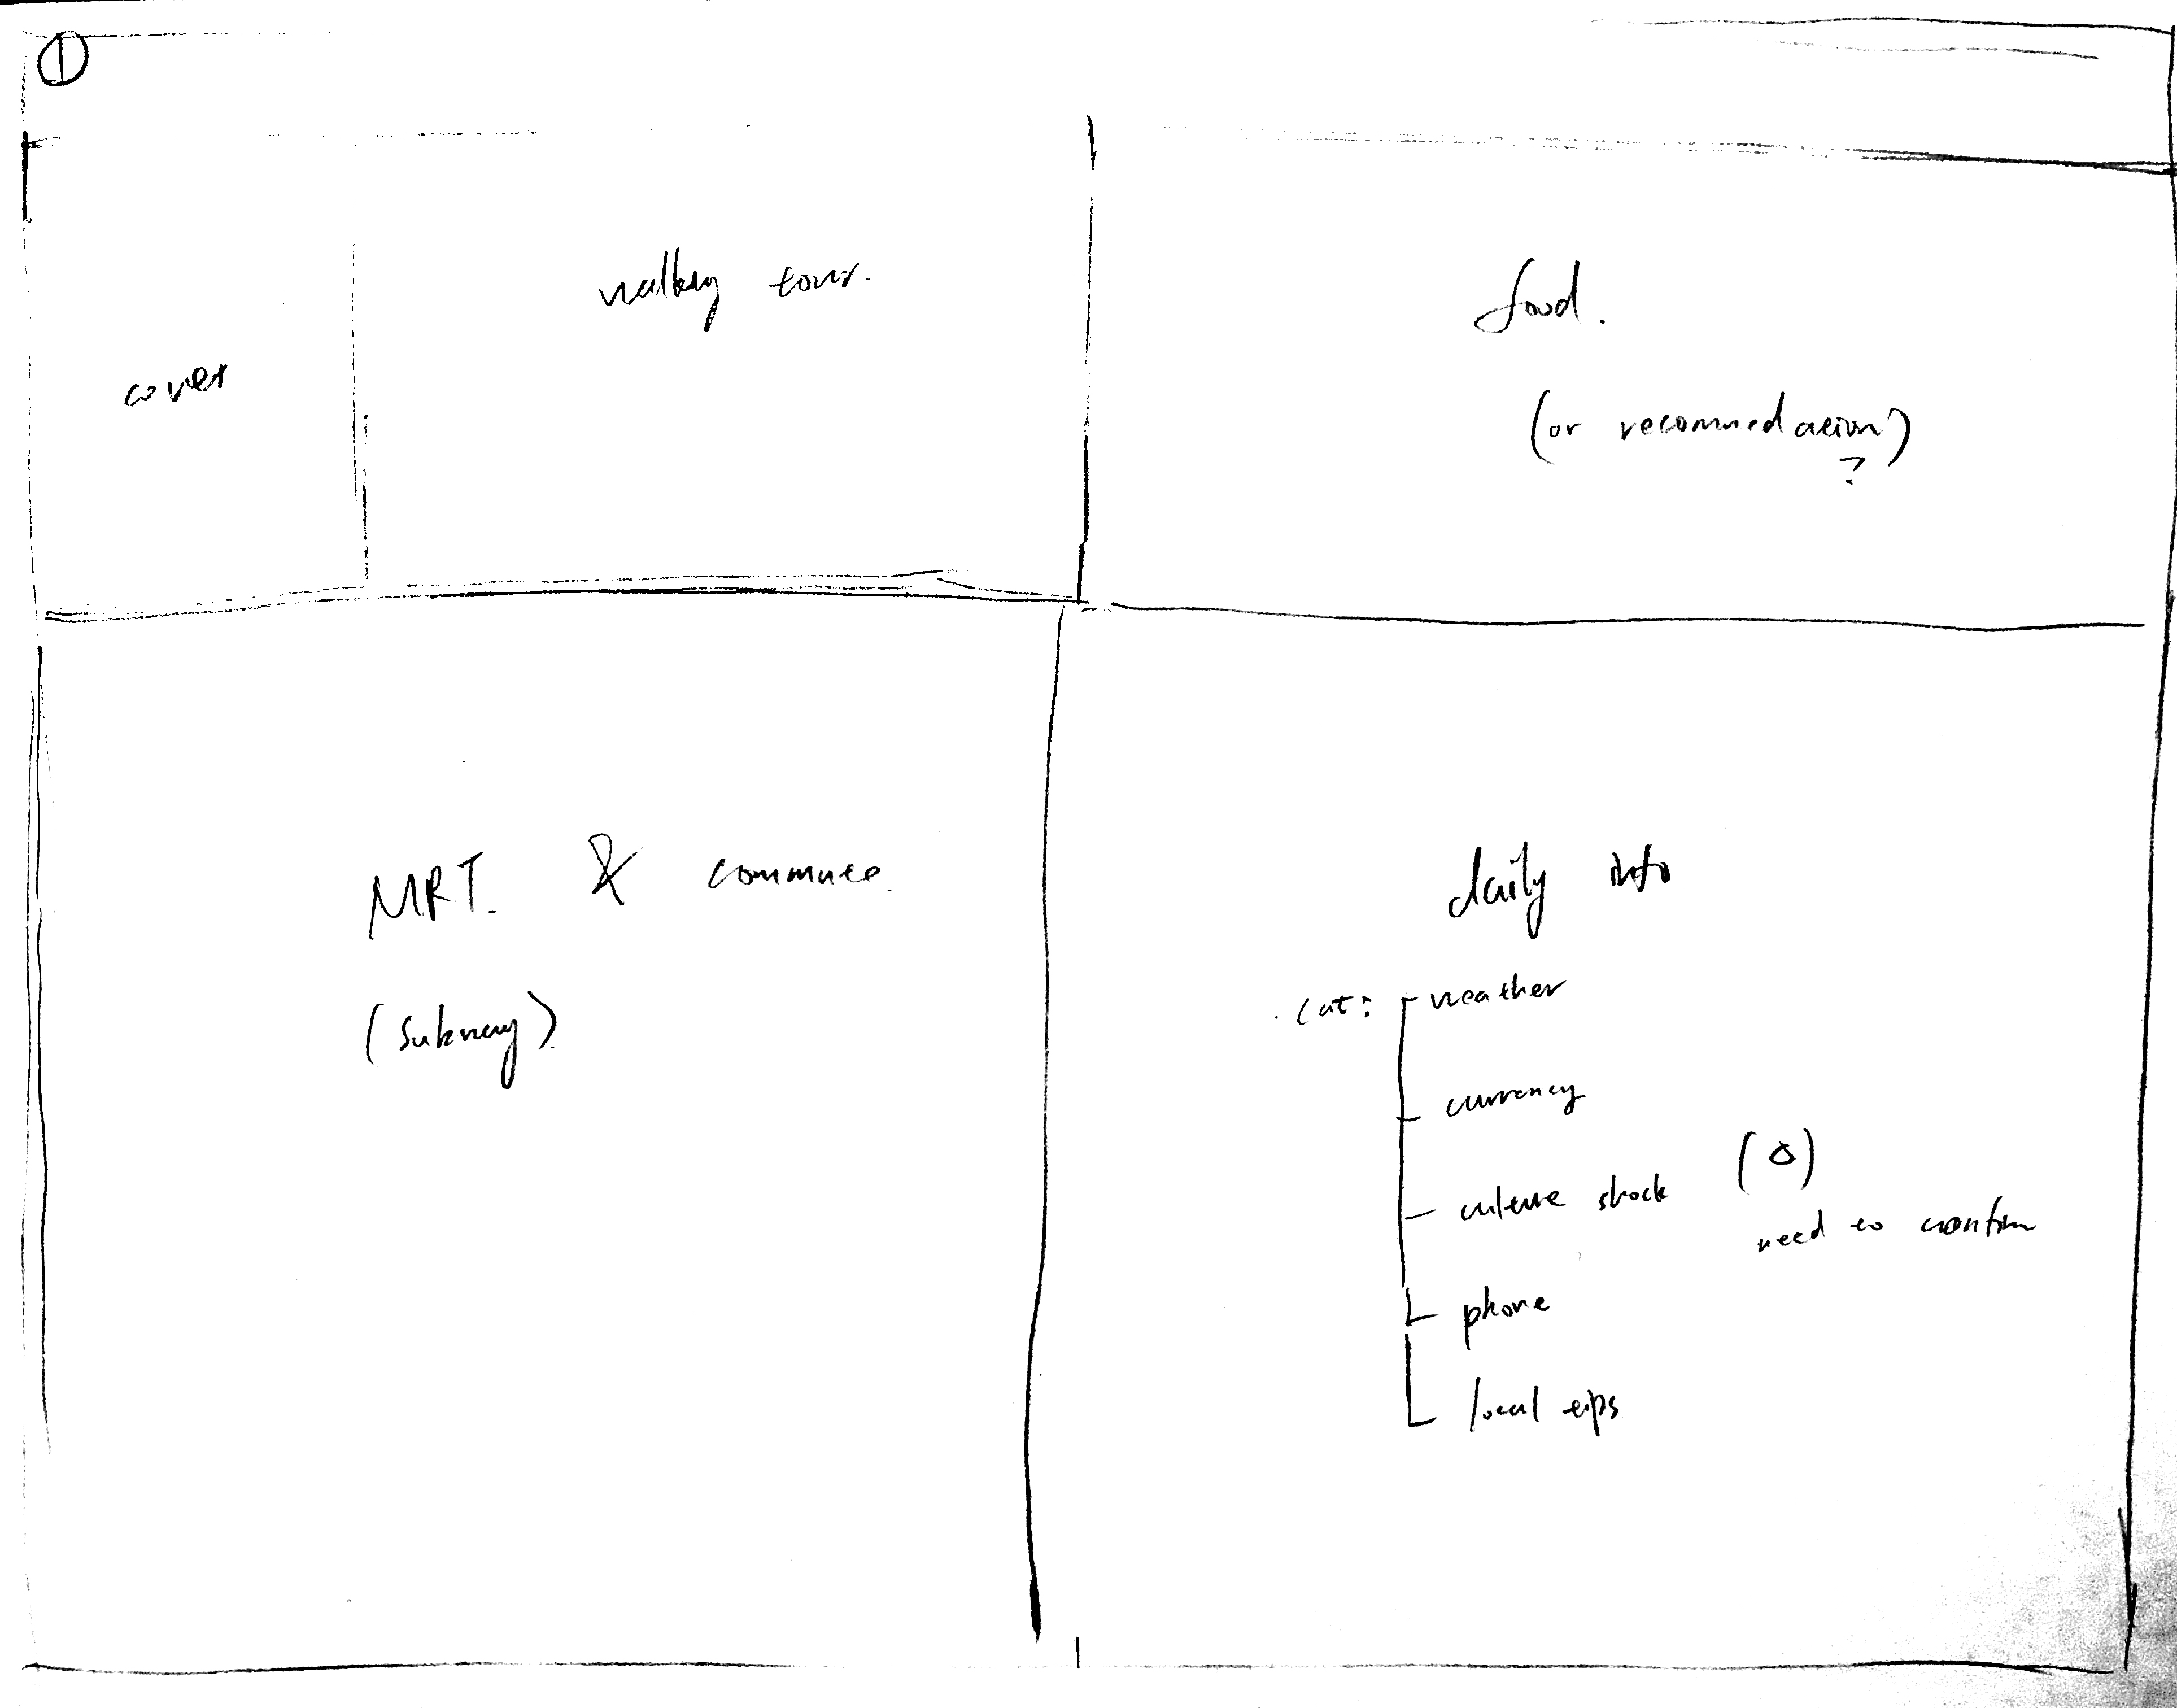 ①
cover
walking tour.
food.
(or recommedation)
?
MRT. & commute.
(Subway)
daily info
cat:
weather
currency
culture shock (△)
need to confirm
phone
local tips